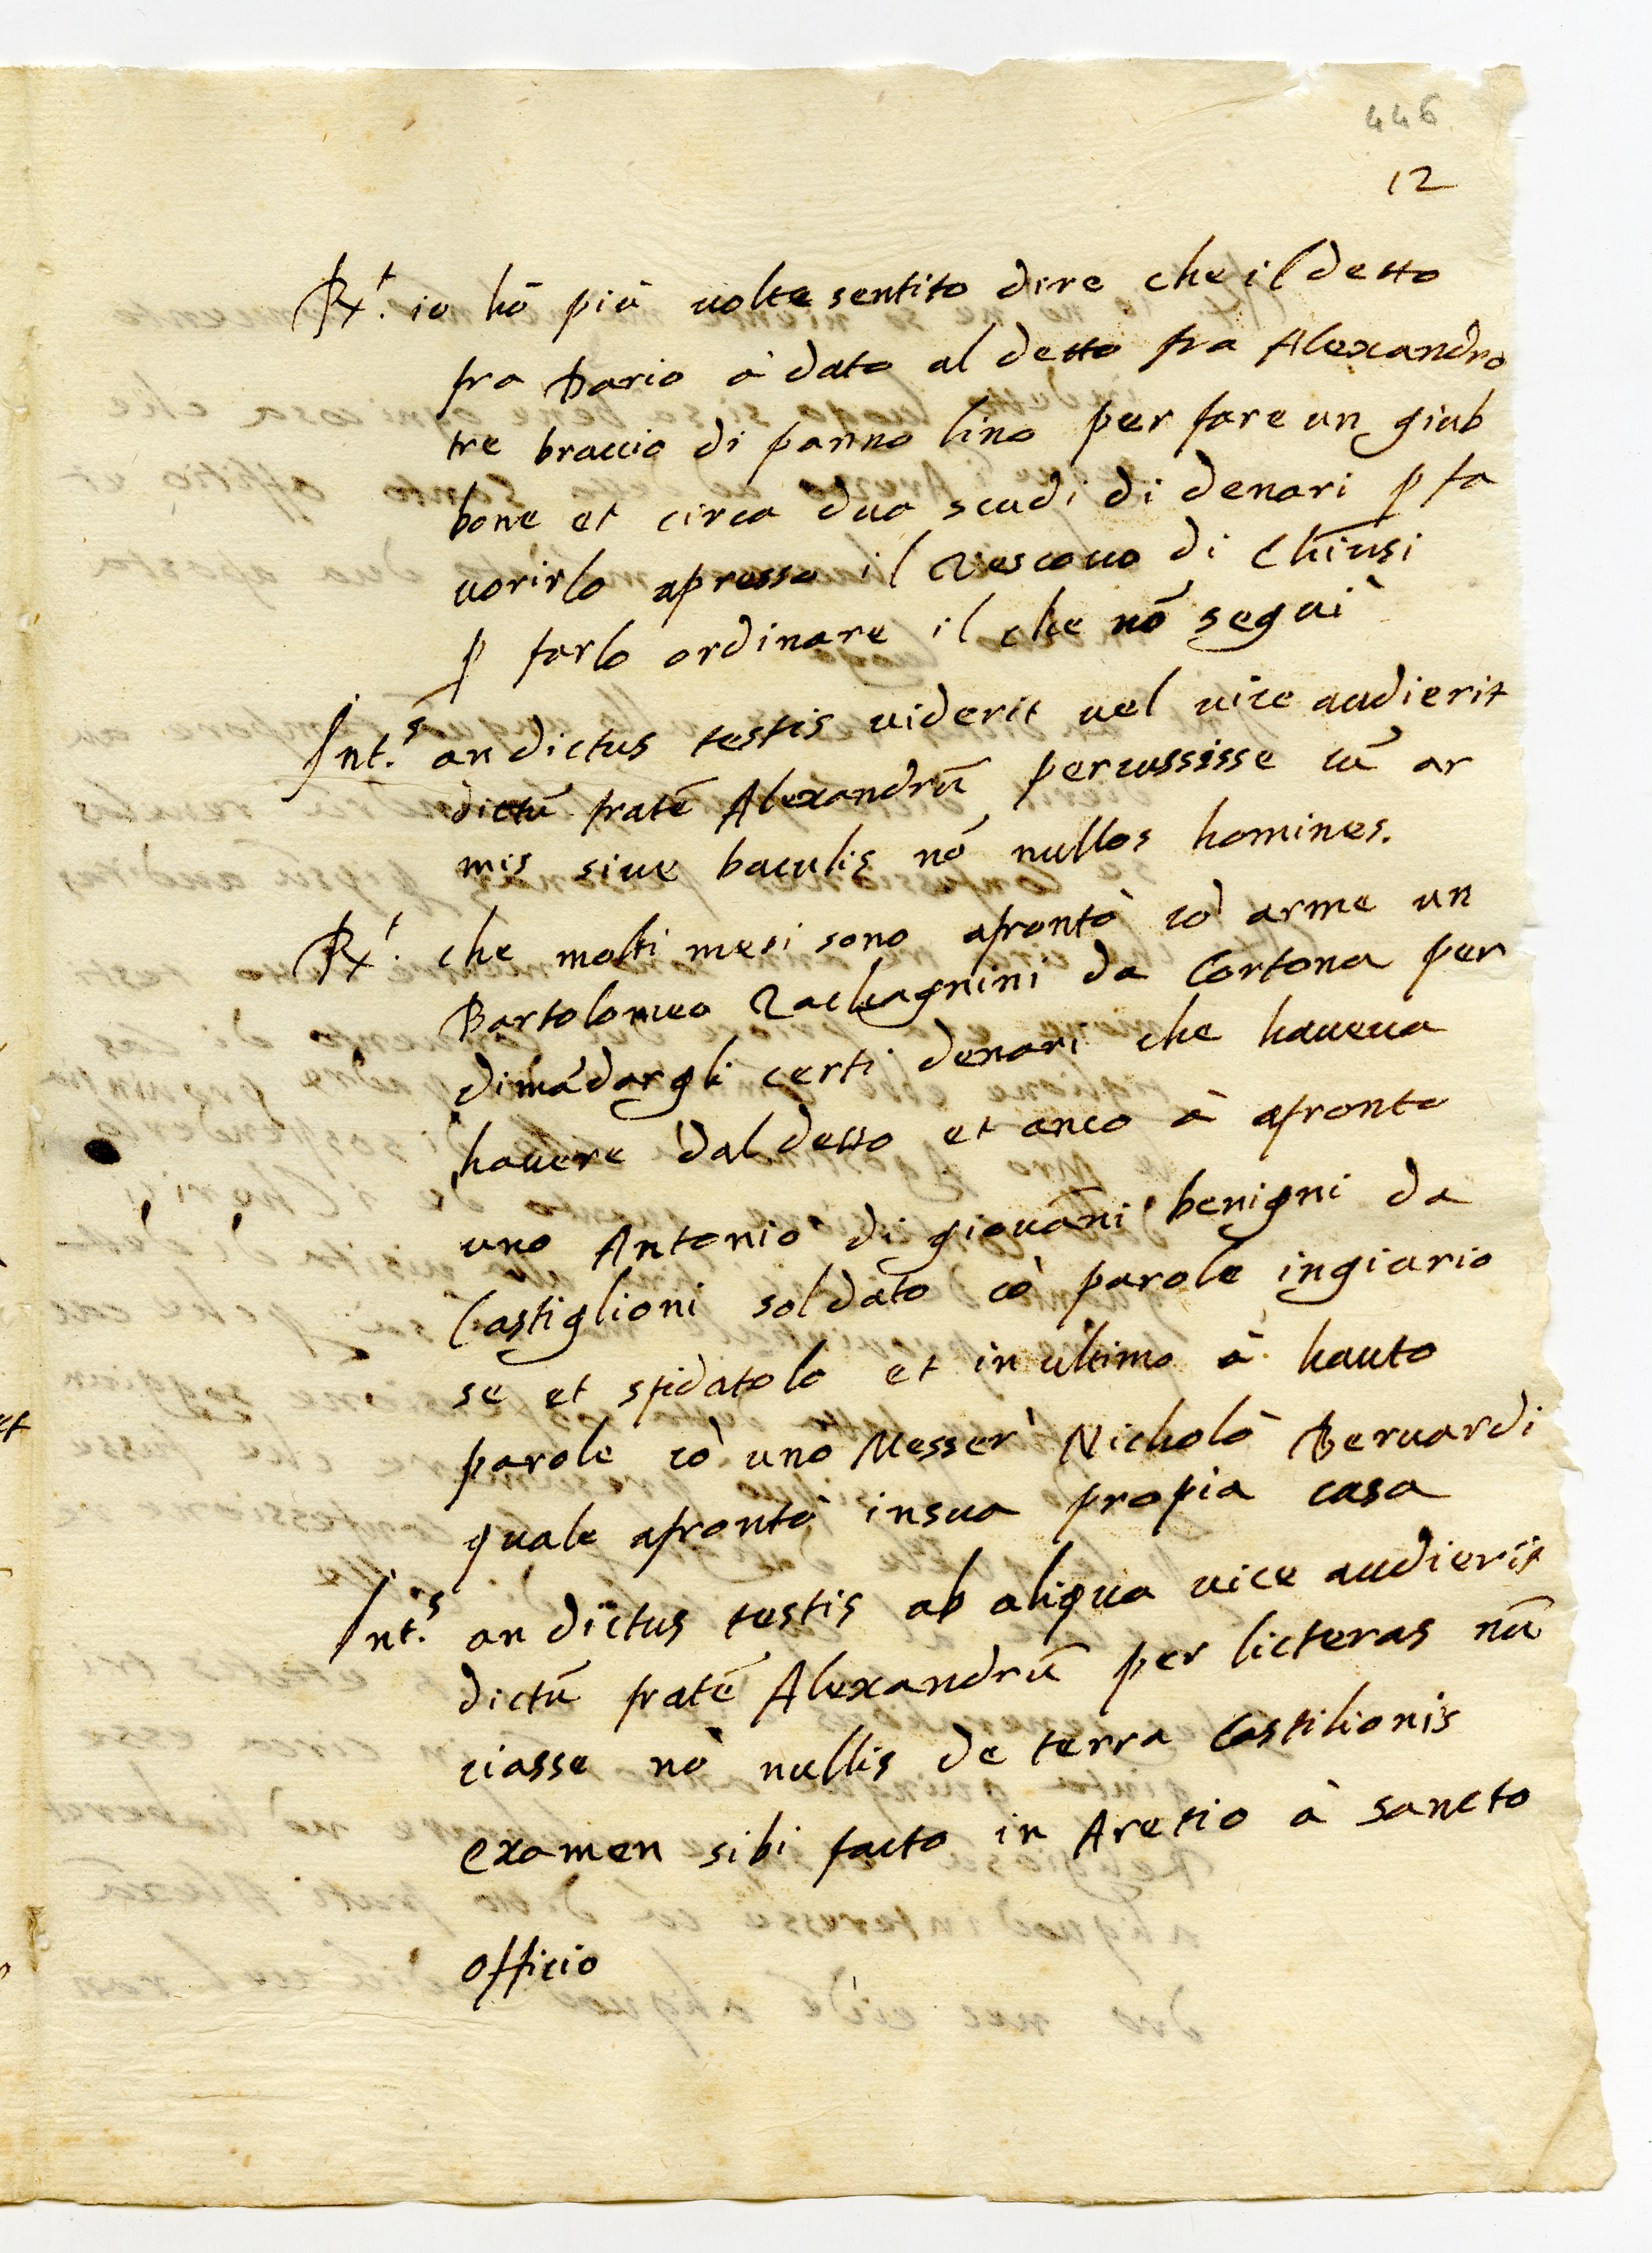 446
12
Rx.t io hò più uolte sentito dire che il detto
fra Dario à dato al detto fra Alexandro
tre braccia di panno lino per fare un giub
bone et circa dua scudi di denari p fa
uorirlo apresso il Vescouo di Chiusi
p farlo ordinare il che nō seguì
Int.s an dictus testis uiderit uel uice audierit
dictū fratē Alexandrū percussisse cū ar
mis siue baculis nō nullos homines.
Rx.t che molti mesi sono afrontò cō arme un
Bartolomeo Zachagnini da Cortona per
dimādargli certi denari che haueua
hauere dal detto et anco à afronto
uno Antonio di giouāni benigni da
Castiglioni soldato cō parole ingiurio
se et sfidatolo et in ultimo à hauto
parole cō uno Messer Nicholò Beruardi
quale afrontò insua propia casa
Int.s an dictus testis ab aliqua uice audierit
dictū fratē Alexandrū per licteras nū
ciasse nō nullis de terra Castilionis
examen sibi facto in Aretio à sancto
officio